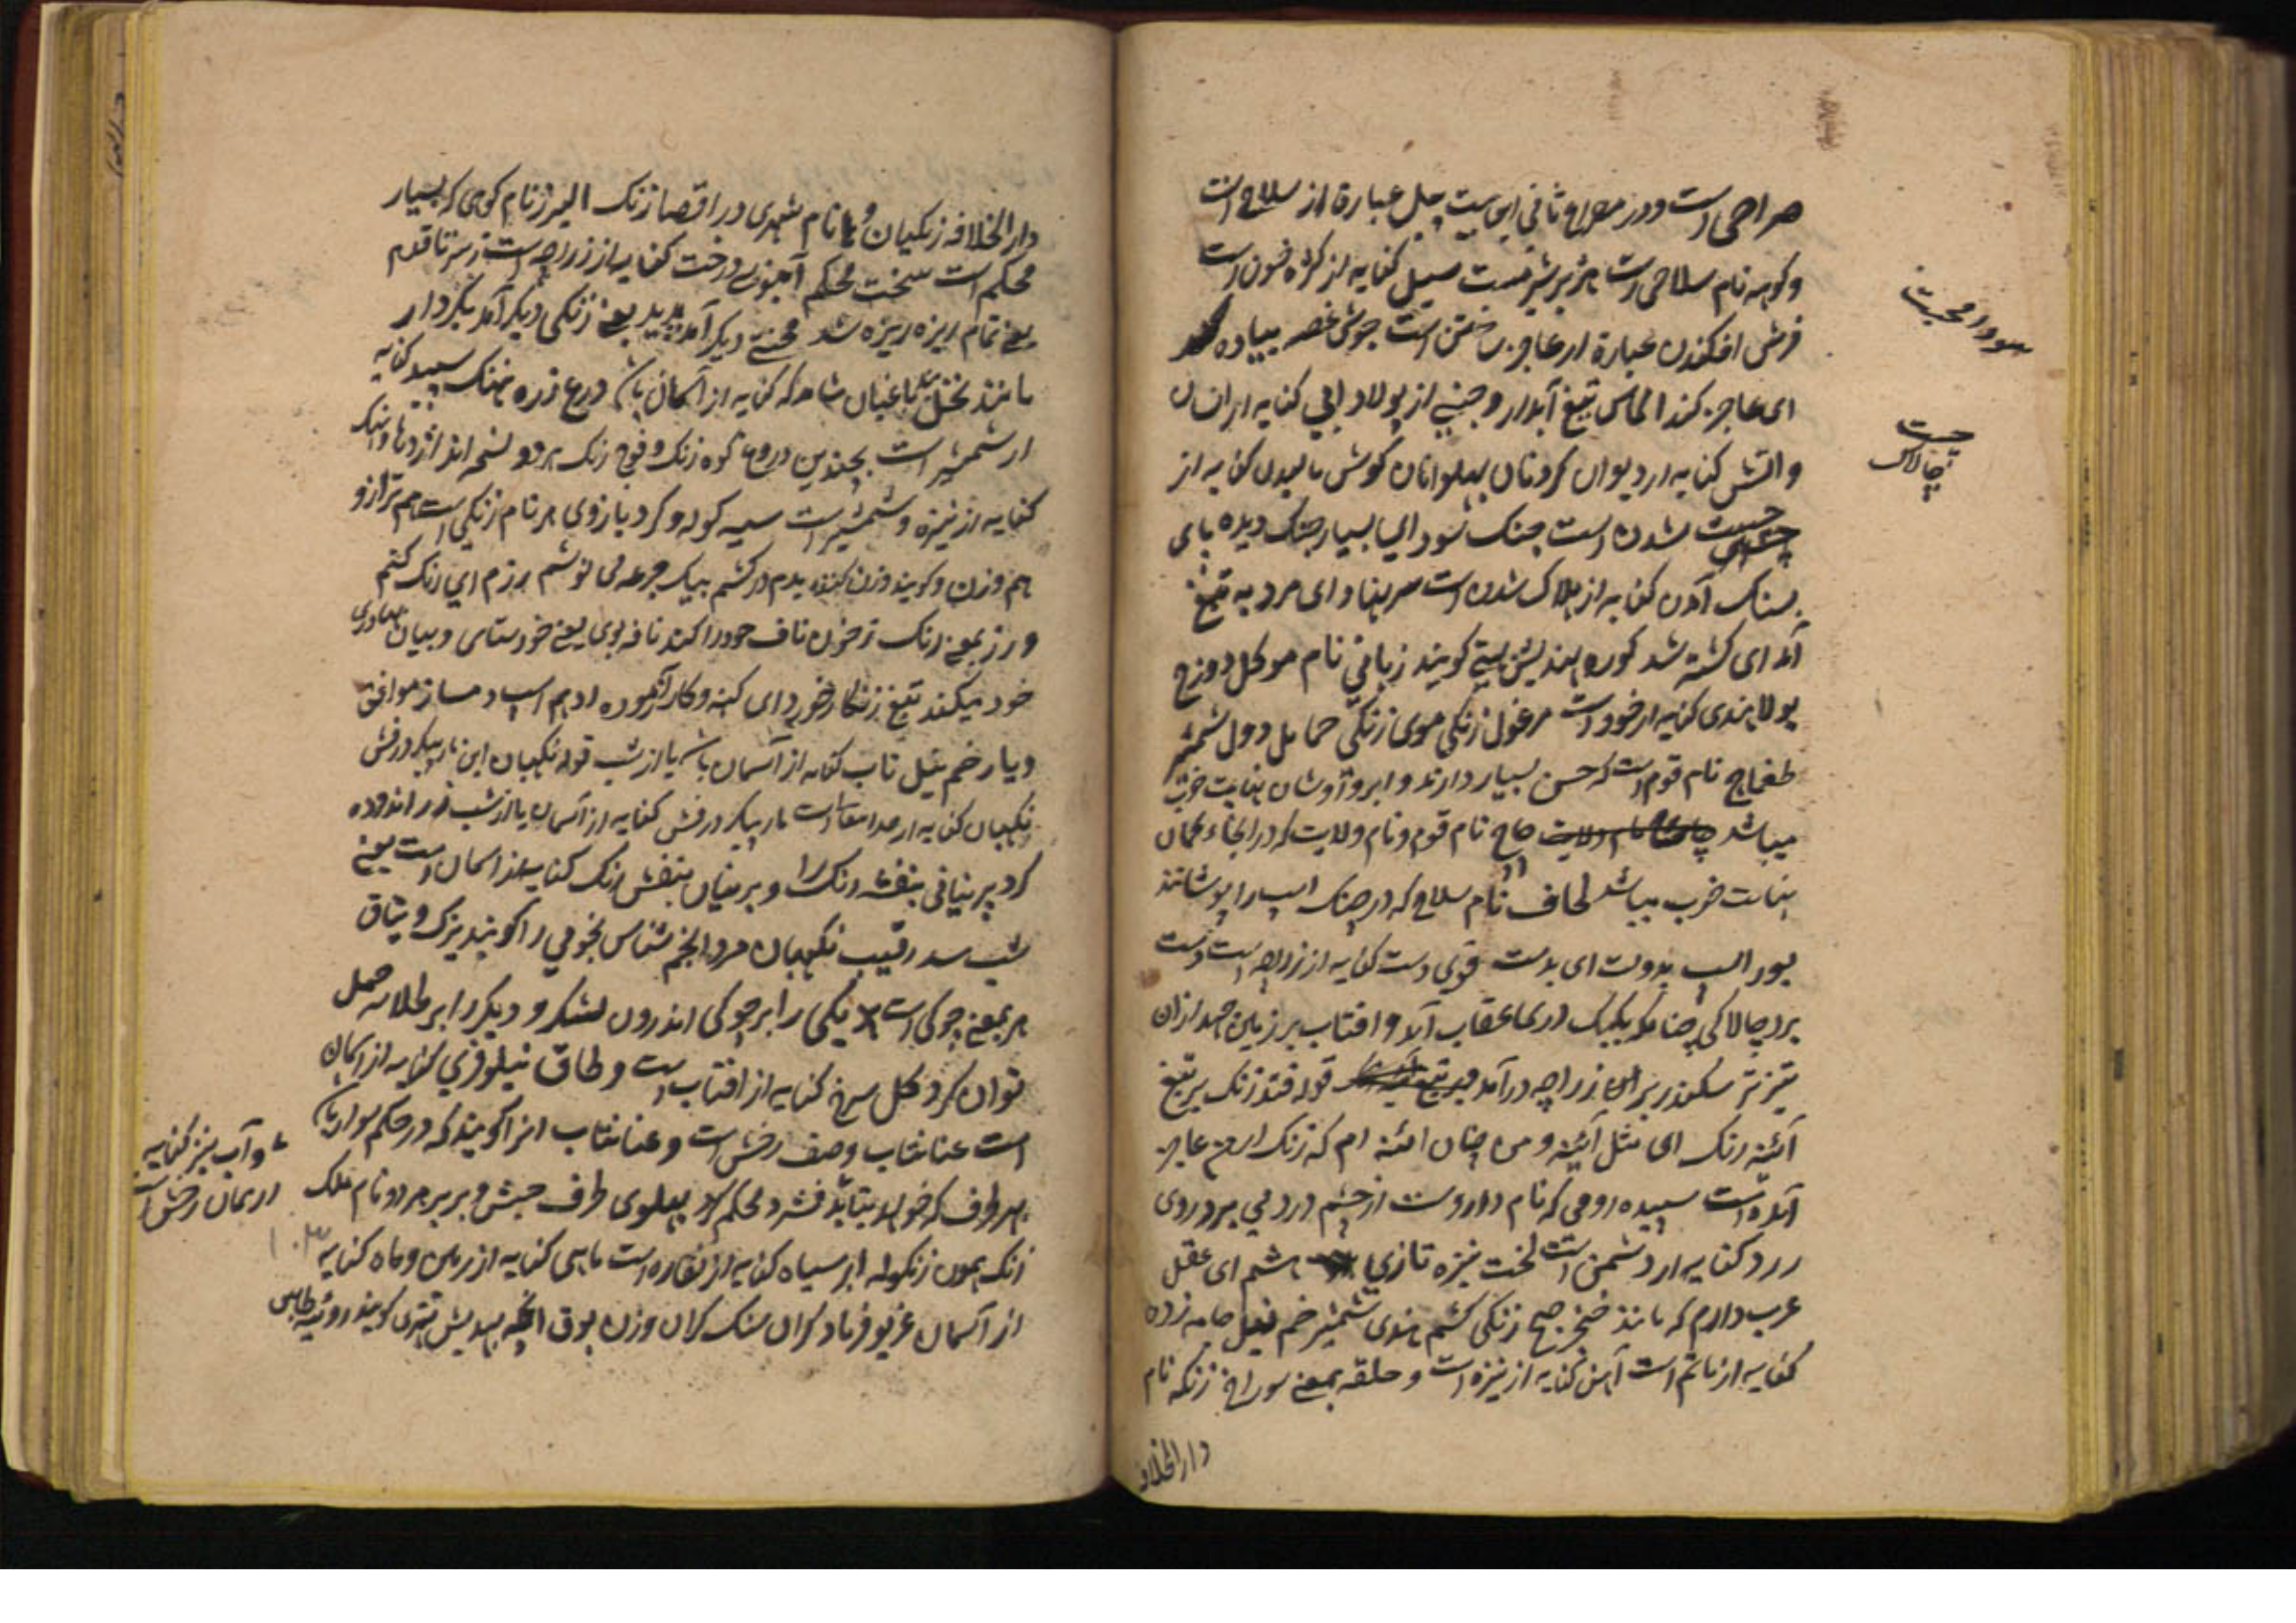 صراحی است و در مصراع ثانی این بیت چل عبارة از سلاح است
و کوهه نام سلاحی است هژبر شیر مست سیل کنایه از کرده خون است
فرش افکندن عبارة از عاجز ساختن است جوش غصه پیاده کند
ای عاجز کند الماس تیغ آبدار و جنسی از پولاد ابی کنایه از انسان
و اتش کنایه از دیوان کردنان پهلوانان کوش مالیدن کنایه از
چست شدن است جنک سودای بسیار جنک دیده پای
بسنک آمدن کنایه از هلاک شدن است سر بنهاد ای مرد به تیغ
آمد ای کشته شد کوره بهندیش بهتی کویند زبانی نام موکل دوزخ
پولا هندی کنایه از خود است مرغول زنکی موی زنکی حمایل دول شمشیر
طغماج نام قوم است که حسن بسیار دارند و ابروآ و شان بغایت خوب
میباشد چاچ نام قوم و نام ولایت که در انجا کمان
بغایت خوب میباشد لحاف نام سلاح که در جنک اسپ را پوشانند
بور اسپ بدولت ای بدست قوی دست کنایه از زراچه است دست
برد چالاکی چنانکه بکبک دریا عقاب آید و افتاب بر زمین جهد ازان
تیزتر سکندر برای زراچه درآمد قوله فتد زنک بر تیغ
آئینه رنک ای مثل آئینه و من چنان ائینه ام که زنک از من عاجز
آمده است سپیده رومی که نام داروست از چشم درد می برد روی
زرد کنایه از دشمن است لخت نیزه تازی هشم ای عقل
عرب دارم که مانند خنجر صبح زنکی کشم هندی شمشیر خم نیل جامه زده
کنایه از ماتم است آهن کنایه از نیزه است و حلقه بمعنی سوراخ زنکه نام
دار الخلافه
سودا محبت
چست
چالاک
دار الخلافه زنکیان و یا نام شهری در اقصا زنک البرز نام کوهی که بسیار
محکم است سخت محکم آهنین درخت کنایه از زراچه است ز سر تا قدم
یعنی تمام ریزه ریزه شد محنتی دیکر آمد پدید یعنی زنکی دیکر آمد بکردار
مانند نخل باغبان شاه که کنایه از آسمان باشد درع زره نهنک سپید کنایه
از شمشیر است بچندین دروغ کوه زنک و فوج زنک هر دو نسخه اند اژدها و نهنک
کنایه از نیزه و شمشیر است سیه کوله و کرد بازوی هر نام زنکی است هم ترازو
هم وزن و کویند وزن کننده بدم در کشم بیک جرعه می نوشم برزم ای رنک کنم
و رز بمعنی رنک تر خون ناف خود را کند نافه بوی یعنی خودستای و بیان بهادری
خود میکند تیغ زنکار خورد ای کهنه و کار آزموده ادهم اسپ دمساز موافق
و یار خم نیل تاب کنایه از آسمان باشد یا از شب قوله نکهبان این مار پیکر درفش
نکهبان کنایه از خدا تعالی است مار پیکر درفش کنایه از آسمان یا از شب زر اندوده
کرد پرنیانی بنفشه رنک را و پرنیان بنفش رنک کنایه از آسمان است یعنی
شب شد رقیب نکهبان مرد انجم شناس نجومی را کویند یزک و یتاق
هر بمعنی چوکی است یکی را بر چوکی اندرون لشکر و دیکر را بر طلایه حمل
توان کرد کل سرخ کنایه از افتاب است و طاق نیلوفری کنایه از آسمان
است عنانتاب وصف رخش است و عنانتاب انرا کویند که در حکم سوار باشد
بهر طرف که خواهد بتابد فشرد محکم کرد پهلوی طرف حبش و بربر هر دو نام ملک
زنک همون زنکوله ابر سیاه کنایه از نقاره است ماهی کنایه از زمین و ماه کنایه
از آسمان غریو فریاد کران سنک کران وزن بوق انچه بهندیش تتری کویند روئینه طاس
و آب نیز کنایه
از همان رخش است
۱۰۳